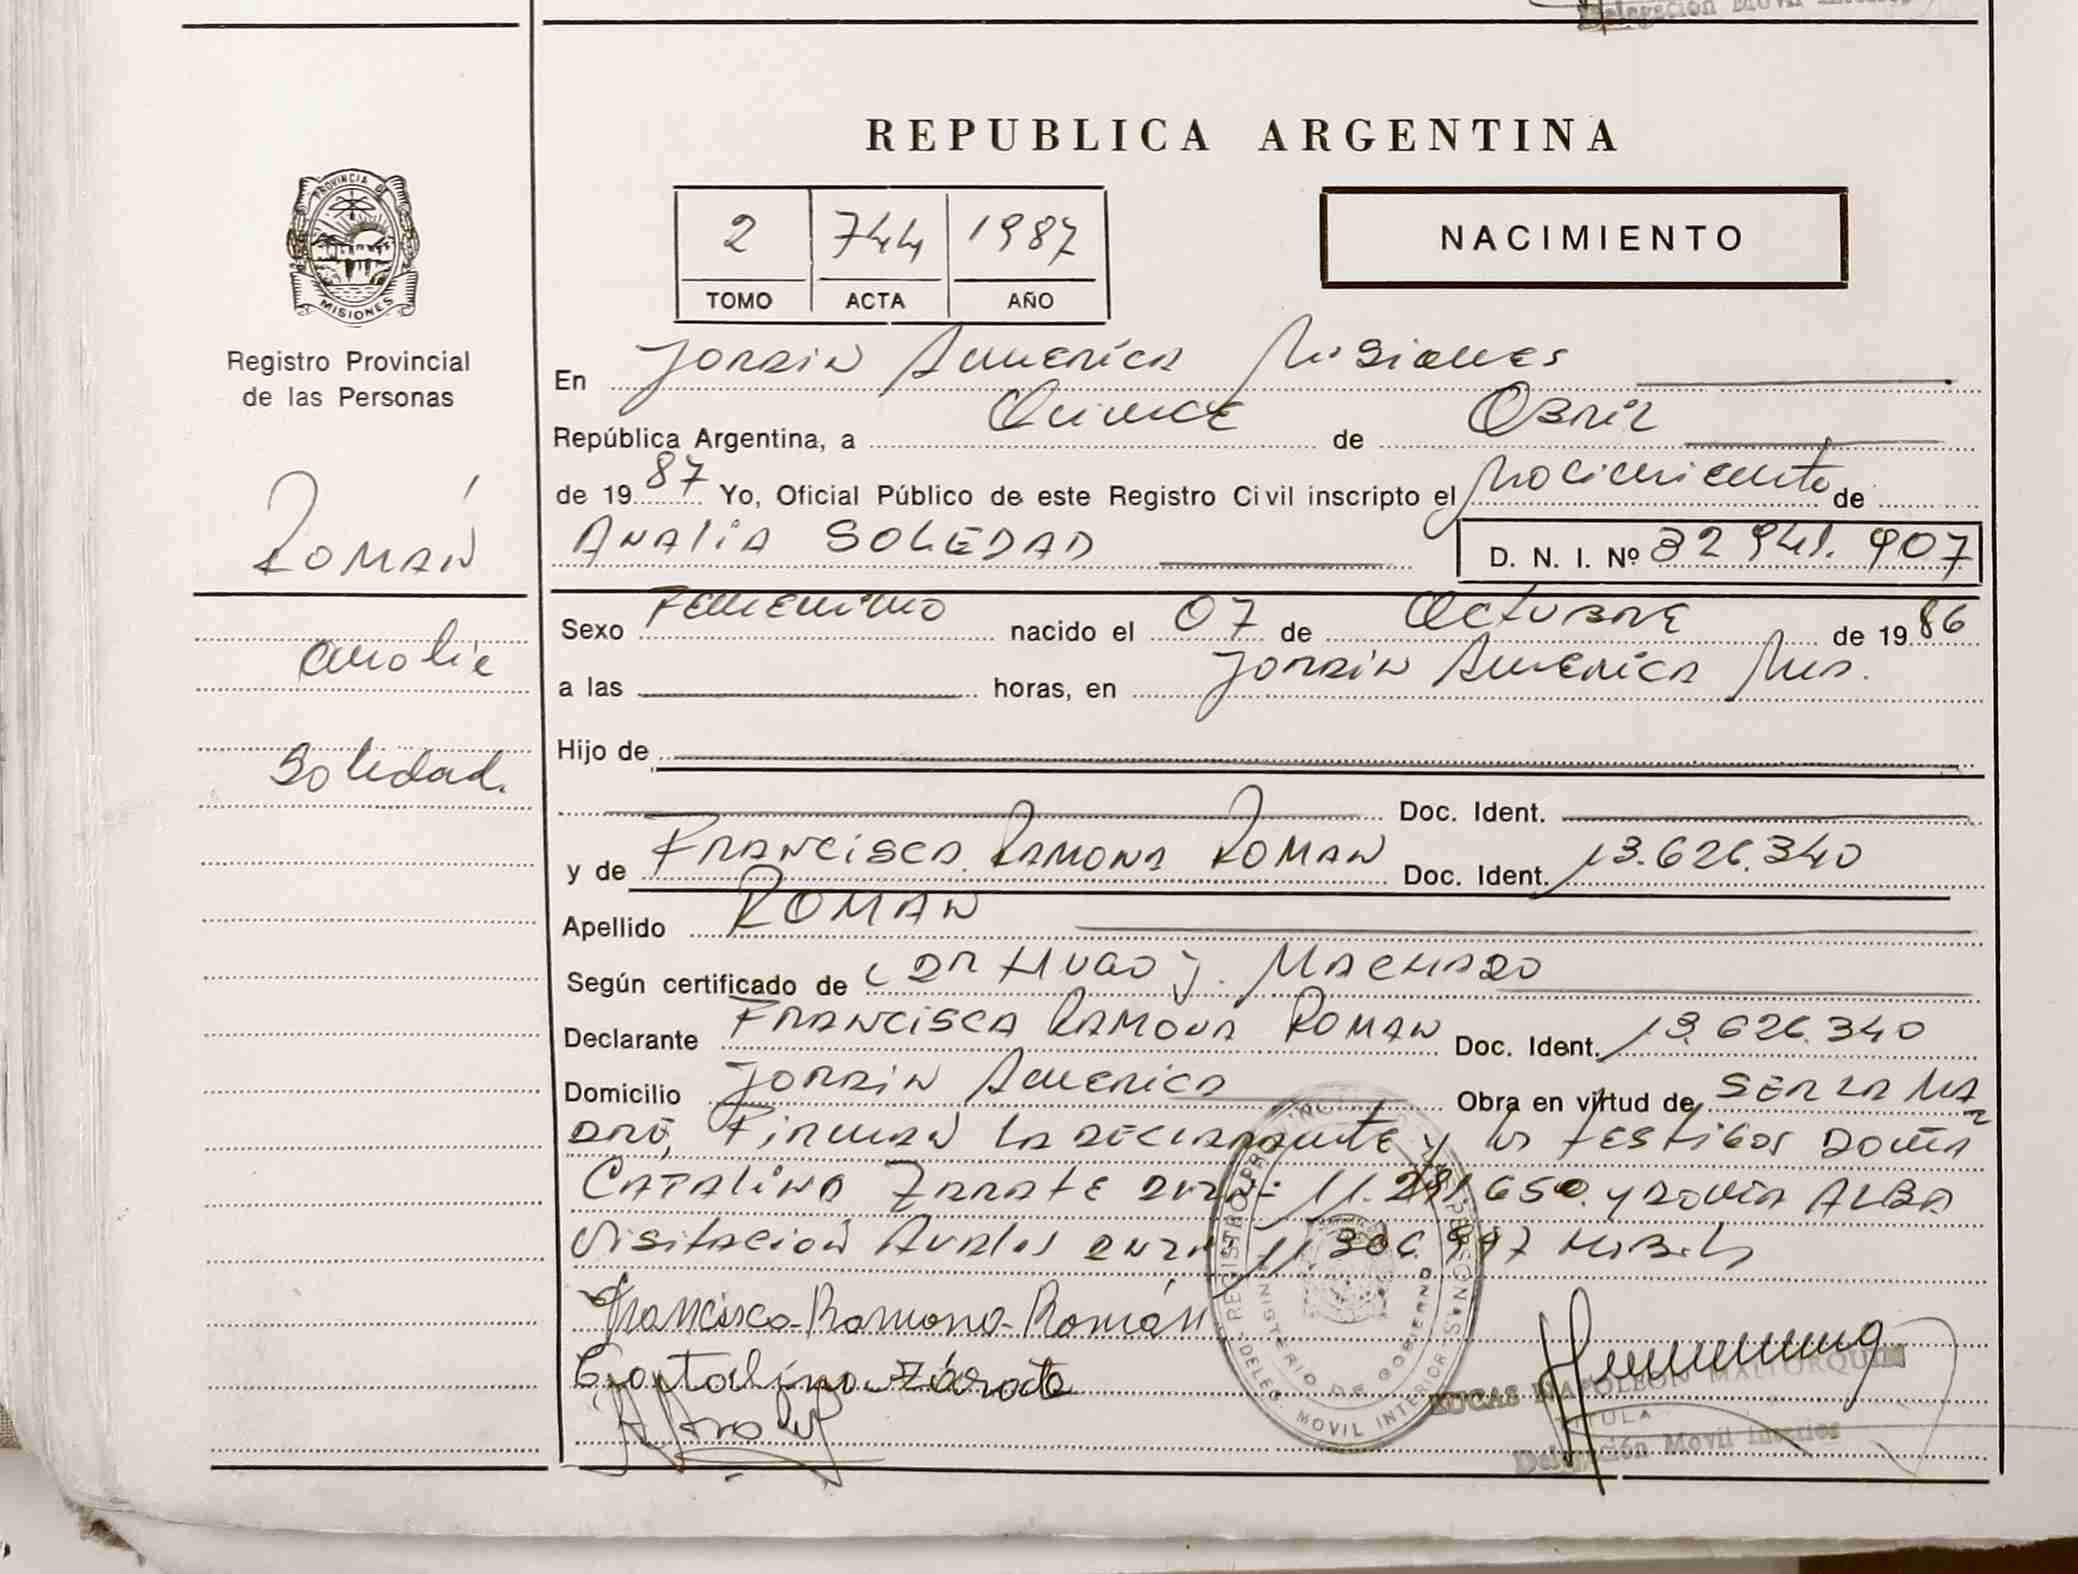 Delegación Móvil Interior
REPUBLICA ARGENTINA
PROVINCIA DE
MISIONES
2 744 1987
TOMO ACTA AÑO
NACIMIENTO
Registro Provincial
de las Personas
En Jardín America Misiones
República Argentina, a Quince de Abril
de 19 87 Yo, Oficial Público de este Registro Civil inscripto el Nacimiento de
ROMÁN
ANALIA SOLEDAD D. N. I. Nº 32 941. 907
Analia
Soledad.
Sexo Femenino nacido el 07 de Octubre de 19 86
a las horas, en Jardín America Mns.
Hijo de
Doc. Ident.
y de FRANCISCA RAMONA ROMAN Doc. Ident. 13.626.340
Apellido ROMAN
Según certificado de Dr Hugo J. MACHADO
Declarante FRANCISCA RAMONA ROMAN Doc. Ident. 13.626.340
Domicilio Jardín America Obra en virtud de SER LA MA
DRE, Firman la declarante y los testigos DOÑA
CATALINA ZARATE 11.281.650. y DOÑA ALBA
Visitacion Avalos
Francisca-Ramona-Román
Catalina Zárate
REGISTRO PROVINCIAL DE LAS PERSONAS
MINISTERIO DE GOBIERNO
DELEG. MOVIL INTERIOR
LUCAS NAPOLEON MALLORQUIN
Delegación Móvil Interior